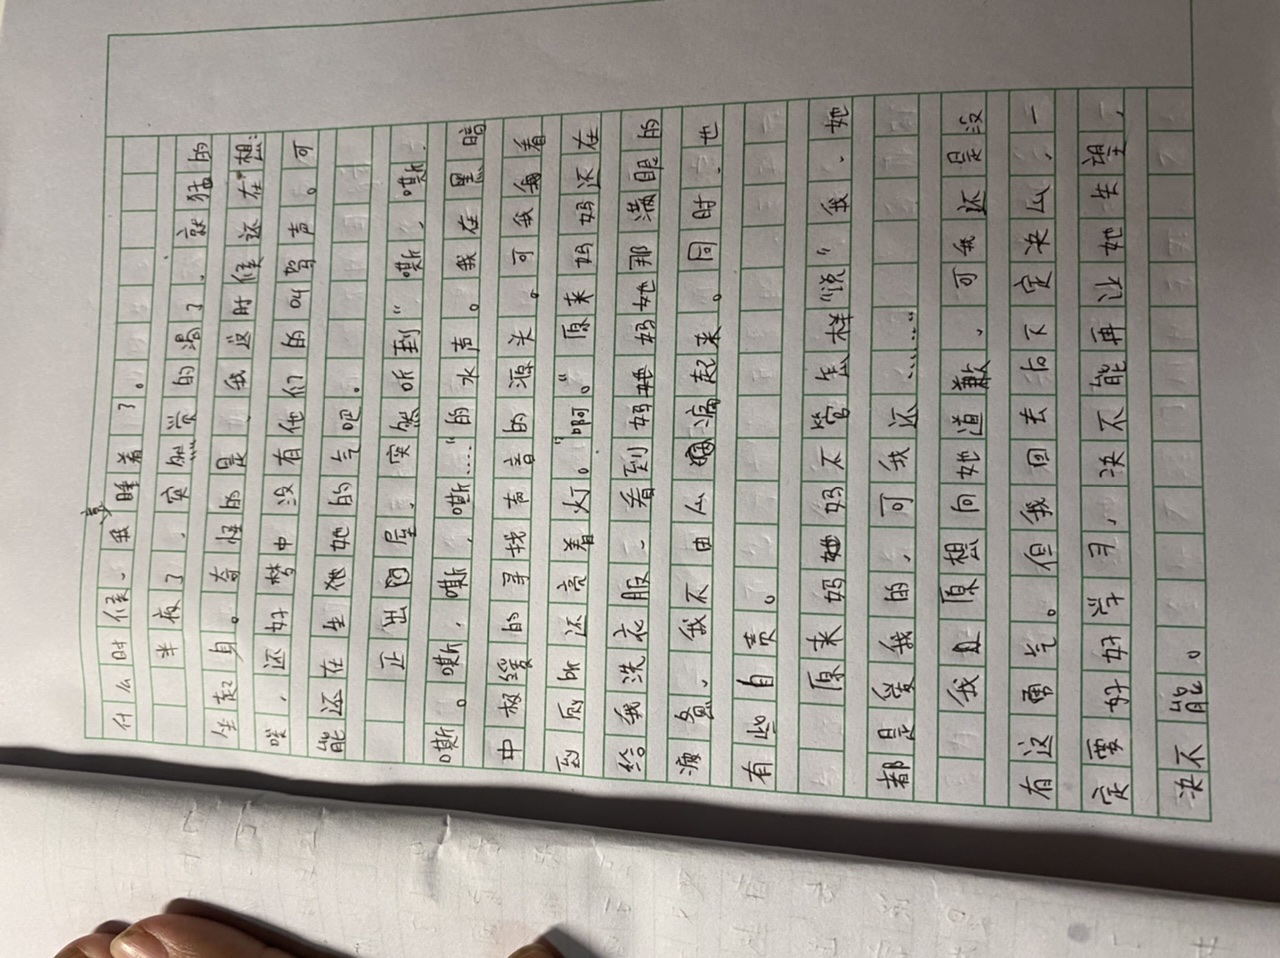 什么时候、我竟睡着了。
半夜了、突然觉的渴了、就猛的
坐起身。奇怪的是、我这时候还在想:
咦、还好梦中没有他们的叫骂声。可
能还在生她的气吧。
正出屋、突然听到“嘶、嘶、
嘶。嘶、嘶、嘶……”的水声。我在黑暗
中极缓的寻找声音的源头。可我看着
到厕所还亮着灯。“啊。”原来妈妈还在
给我洗衣服、看到妈妈她那满眼的
疲惫、我不由心痛起来。同时、也
有些自责。
原来妈妈不管怎样“说”我、她
都是爱我的、可我还……”
我原想向她道歉、可我还是没
有这勇气。但我回去占下定决心、一
定要好好学习、决不能再让她失望、
决不能。